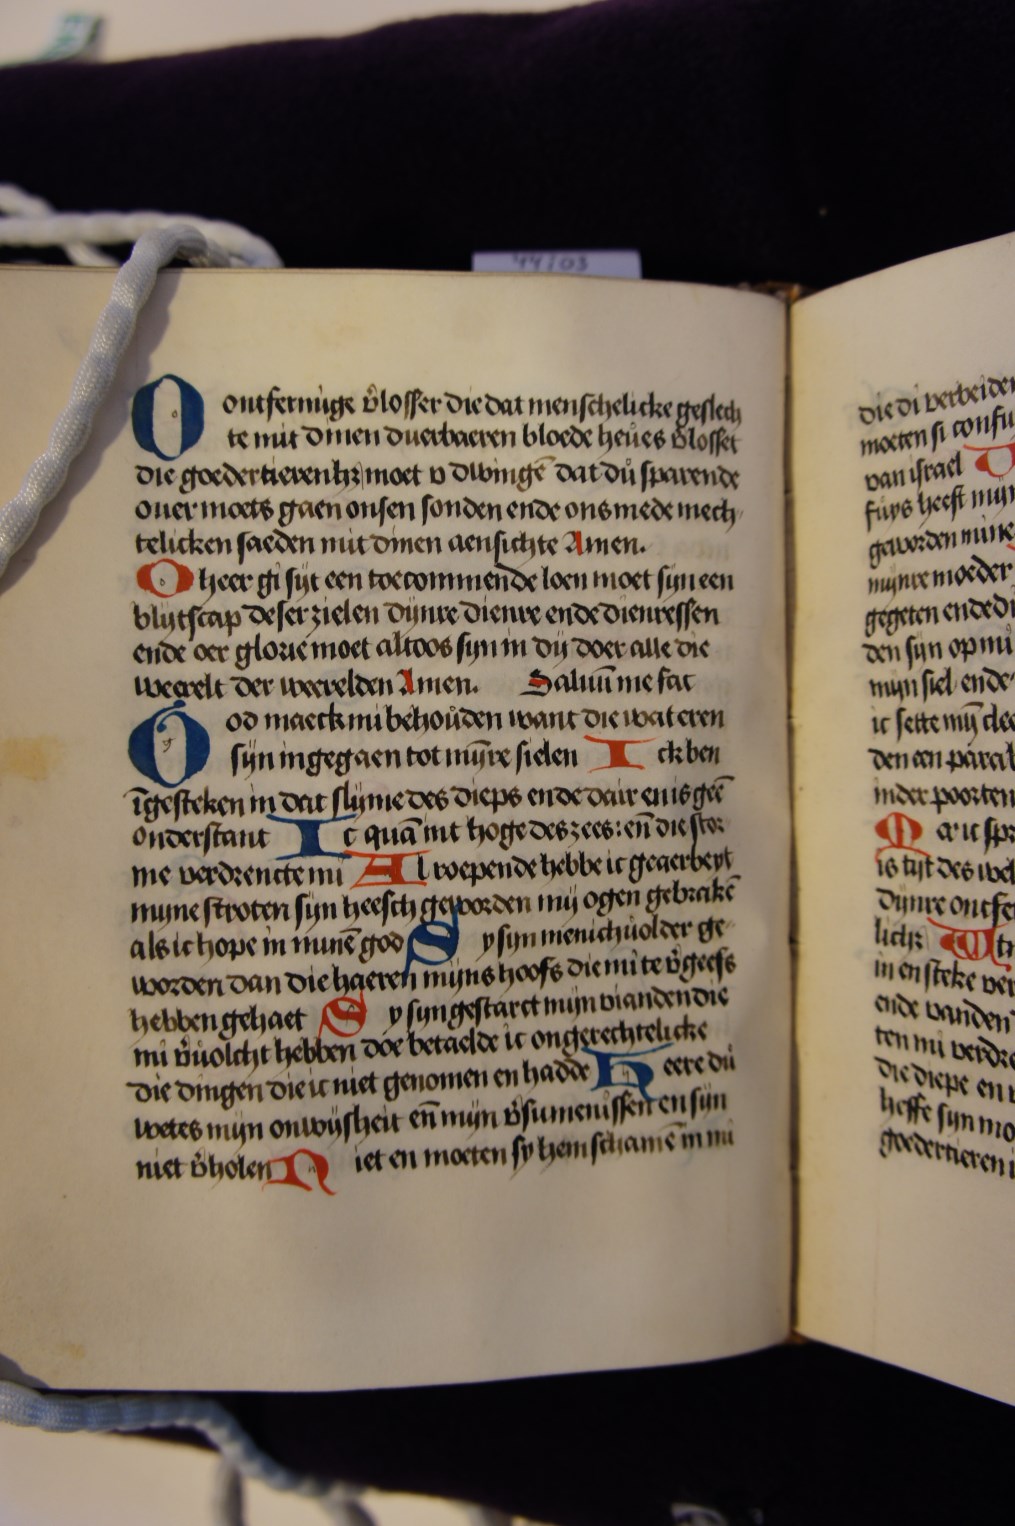 44 / 03
O ontfermige v̾losser die dat menschelicke geslech
te mit dinen duerbaeren bloede heues v̾losset
die goedertierenhz moet v dwingē dat dů sparende
ouer moets gaen onsen sonden ende ons mede mech
telicken saeden mit dinen aensichte Amen.
O heer gi sijt een toecommende loen moet sijn een
blijtscap deser zielen dijnre dienre ende dienressen
ende oer glorie moet altoos sijn in dij doer alle die
werelt der werelden Amen. Saluū me fac
God maeck mi behoůden want die wateren
sijn ingegaen tot mijre sielen Ick ben
īgesteken in dat slijme des dieps ende dair en is geē
onderstant Ic quā int hoge des zees: eñ die stor
me verdrencte mi Al roepende hebbe ic gearbeyt
mijne stroten sijn heesch geworden mij ogen gebrakē
als ic hope in minē god Sy sijn menichuolder ge
worden dan die haeren mijns hoofs die mi te v̾geefs
hebben gehaet Sy sijn gestarct mijn vianden die
mi v̾uolcht hebben doe betaelde ic ongerechtelicke
die dingen die ic niet genomen en hadde Heere dů
wetes mijn onwijsheit eñ mijn v̾sumenissen en sijn
niet v̾holen Niet en moeten sy hem schamē in mi
die di verbeiden
moeten si confu
van israel
fuys heeft mijn
geworden mine
mijnre moeder
gegeten ende di
den sijn op mi
mijn siel ende
ic sette mij clee
den een parab
inder poorten
Mer ic spr
is tijt des wel
dijnre ontfe
licht
in en steke ver
ende vanden
ten mi verdre
die diepe en v
heffe sijn mo
goedertieren i